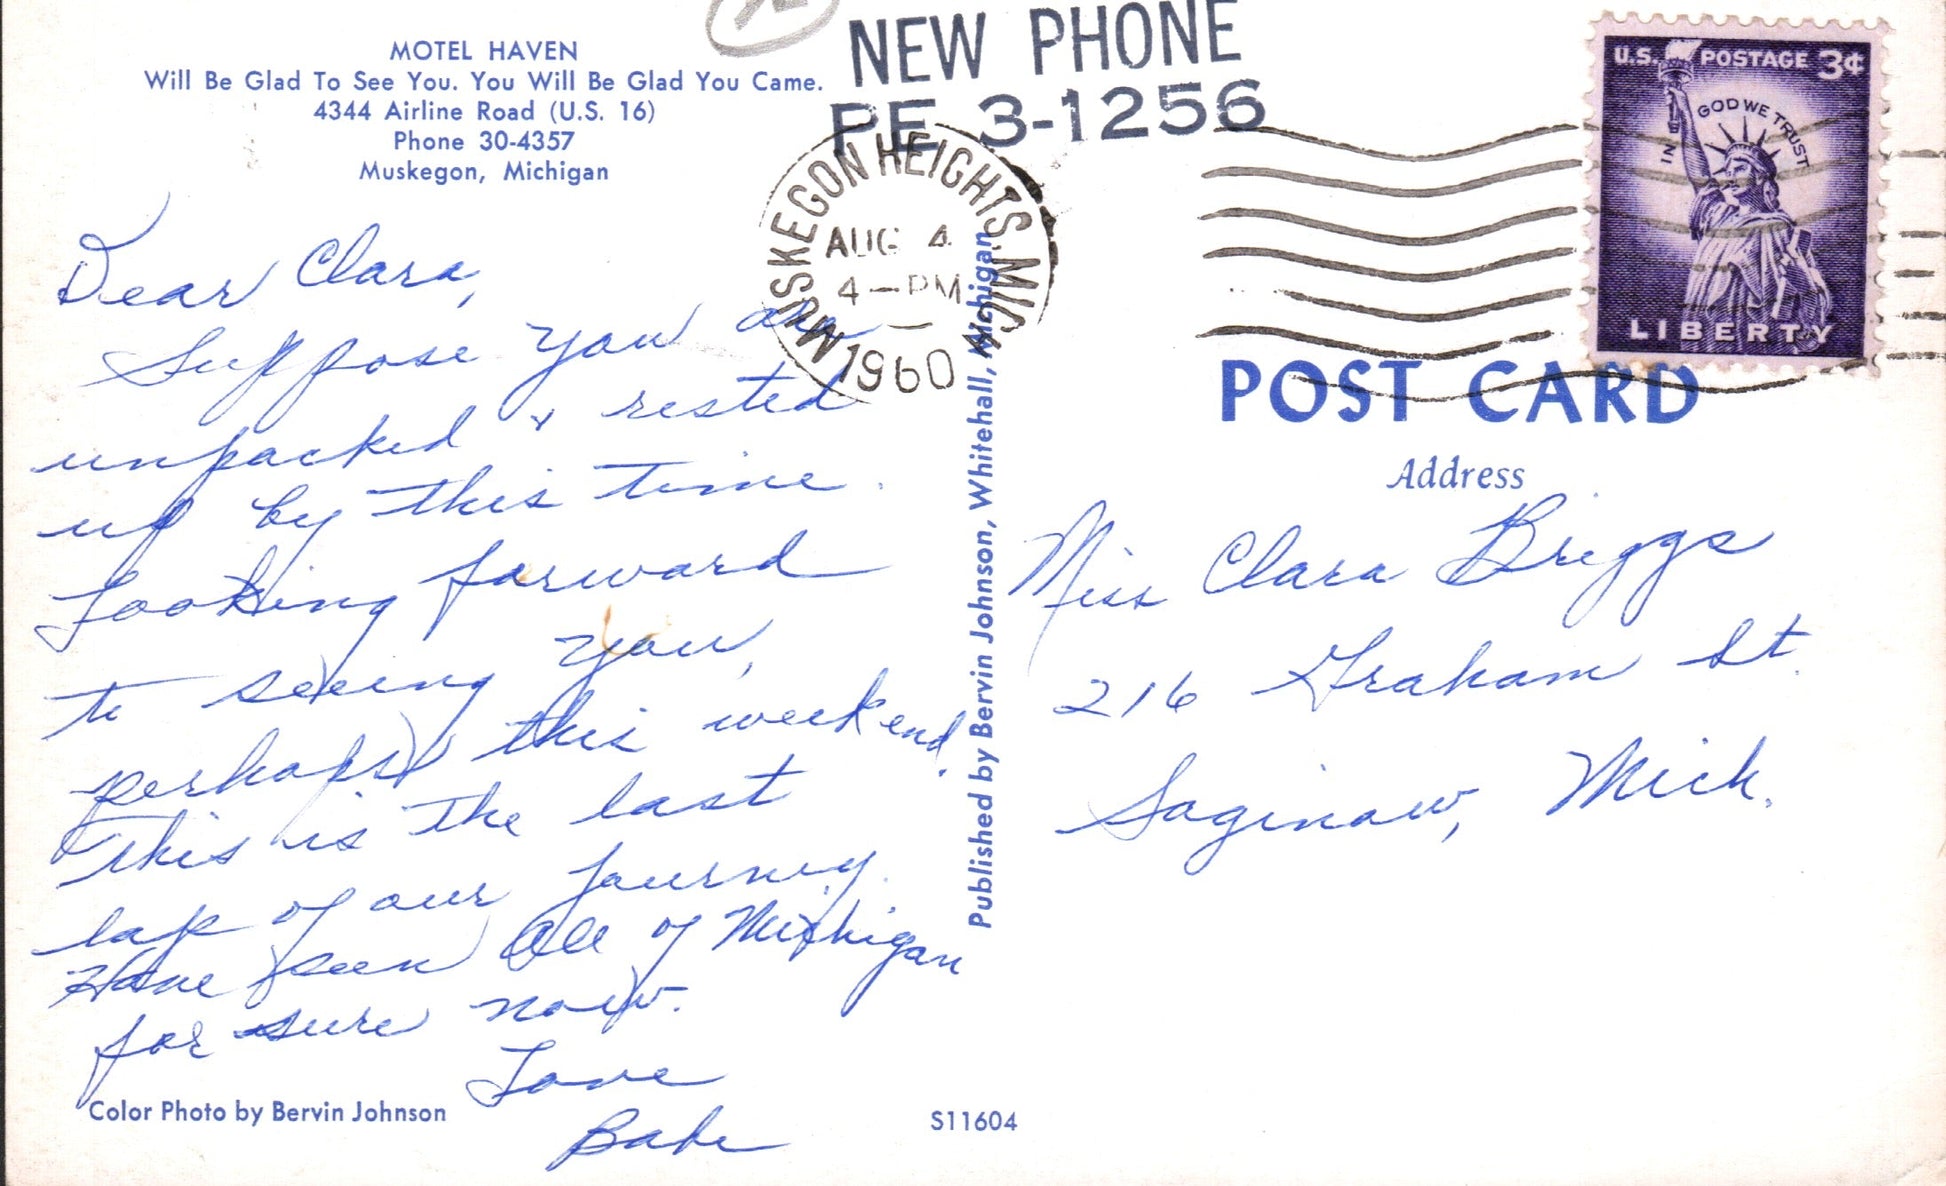 MOTEL HAVEN
Will Be Glad To See You. You Will Be Glad You Came.
4344 Airline Road (U.S. 16)
Phone 30-4357
Muskegon, Michigan
NEW PHONE
PE 3-1256
MUSKEGON HEIGHTS, MICH
AUG 4
4-PM
1960
U.S. POSTAGE 3¢
IN GOD WE TRUST
LIBERTY
Dear Clara,
Suppose you are
unpacked & rested
up by this time.
Looking forward
to seeing you,
perhaps this week end.
This is the last
lap of our journey.
Have seen all of Michigan
for sure now.
Love
Babe
Color Photo by Bervin Johnson
S11604
Published by Bervin Johnson, Whitehall, Michigan
POST CARD
Address
Miss Clara Briggs
216 Graham St.
Saginaw, Mich.